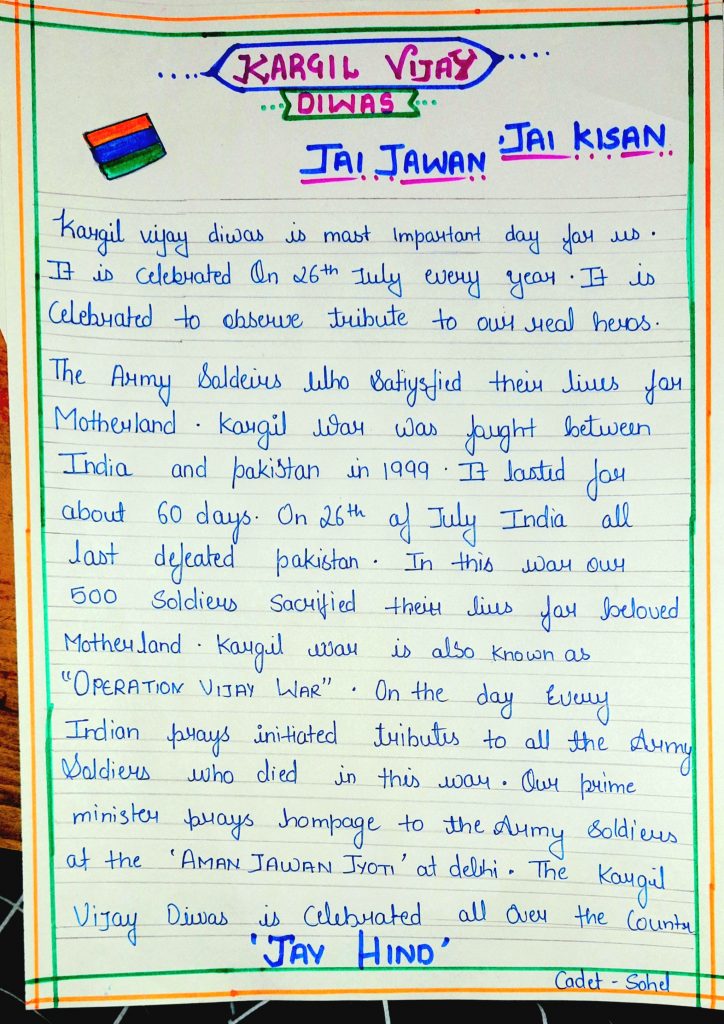 KARGIL VIJAY
DIWAS
JAI JAWAN 'JAI KISAN
Kargil vijay diwas is most important day for us.
It is celebrated On 26th July every year. It is
Celebrated to observe tribute to our real heros.
The Army Soldeirs who Satiysfied their lives for
Motherland. Kargil War was fought between
India and pakistan in 1999. It lasted for
about 60 days. On 26th of July India all
last defeated pakistan. In this war our
500 Soldiers Sacrified their lives for beloved
Motherland. Kargil war is also known as
"OPERATION VIJAY WAR". On the day Every
Indian prays initiated tributes to all the Army
Soldiers who died in this war. Our prime
minister prays hompage to the Army Soldiers
at the 'AMAN JAWAN JYOTI' at delhi. The Kargil
Vijay Diwas is Celebrated all Over the Countr
'JAY HIND'
Cadet - Sohel